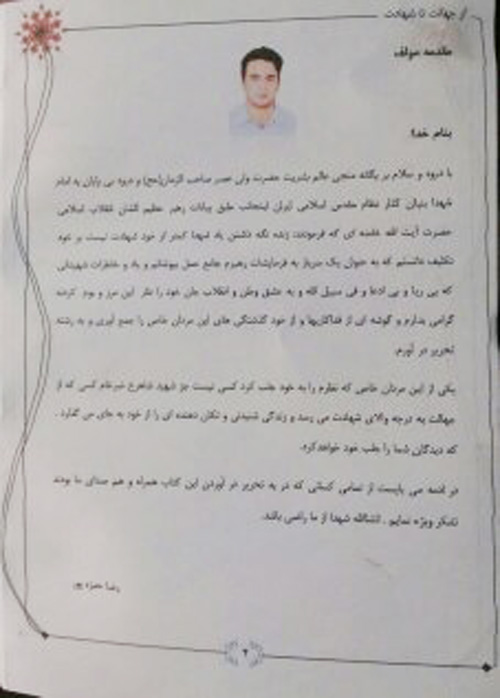 از جهالت تا شهادت
مقدمه مولف
بنام خدا
با درود و سلام بر یگانه منجی عالم بشریت حضرت ولی عصر صاحب الزمان(عج) و درود بی پایان به امام
شهدا بنیان گذار نظام مقدس اسلامی ایران اینجانب طبق بیانات رهبر عظیم الشان انقلاب اسلامی
حضرت آیت الله خامنه ای که فرمودند: زنده نگه داشتن یاد شهدا کمتر از خود شهادت نیست بر خود
تکلیف دانستم که به عنوان یک سرباز به فرمایشات رهبرم جامع عمل بپوشانم و یاد و خاطرات شهیدانی
که بی ریا و بی ادعا و فی سبیل الله و به عشق وطن و انقلاب جان خود را نثار این مرز و بوم کردند
گرامی بدارم و گوشه ای از فداکاریها و از خود گذشتگی های این مردان خاص را جمع آوری و به رشته
تحریر در آورم.
یکی از این مردان خاص که نظرم را به خود جلب کرد کسی نیست جز شهید شاهرخ ضرغام کسی که از
جهالت به درجه والای شهادت می رسد و زندگی شنیدنی و تکان دهنده ای را از خود به جای می گذارد .
که دیدگان شما را جلب خود خواهدکرد.
در ادامه می بایست از تمامی کسانی که در به تحریر در آوردن این کتاب همراه و هم صدای ما بودند
تشکر ویژه نمایم . انشالله شهدا از ما راضی باشد.
رضا حمزه پور
۲